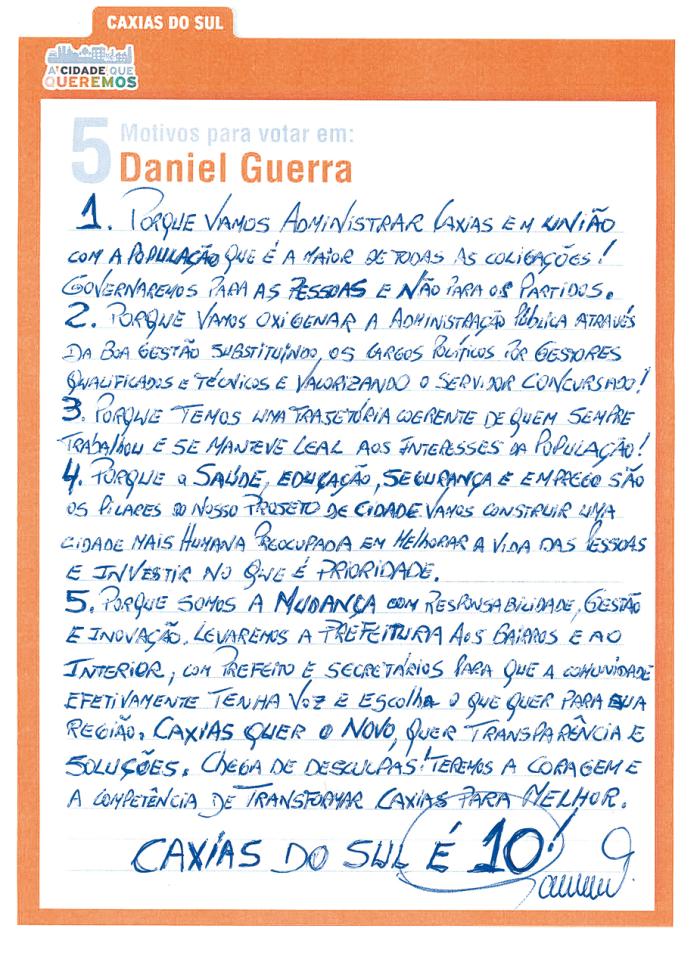 CAXIAS DO SUL
A CIDADE QUE
QUEREMOS
5 Motivos para votar em:
Daniel Guerra
1. PORQUE VAMOS ADMINISTRAR CAXIAS EM UNIÃO
COM A POPULAÇÃO QUE É A MAIOR DE TODAS AS COLIGAÇÕES!
GOVERNAREMOS PARA AS PESSOAS E NÃO PARA OS PARTIDOS.
2. PORQUE VAMOS OXIGENAR A ADMINISTRAÇÃO PÚBLICA ATRAVÉS
DA BOA GESTÃO SUBSTITUINDO, OS CARGOS POLÍTICOS POR GESTORES
QUALIFICADOS E TÉCNICOS E VALORIZANDO O SERVIDOR CONCURSADO!
3. PORQUE TEMOS UMA TRAJETÓRIA COERENTE DE QUEM SEMPRE
TRABALHOU E SE MANTEVE LEAL AOS INTERESSES DA POPULAÇÃO!
4. PORQUE a SAÚDE, EDUCAÇÃO, SEGURANÇA E EMPREGO SÃO
OS PILARES DO NOSSO PROJETO DE CIDADE VAMOS CONSTRUIR UMA
CIDADE MAIS HUMANA PREOCUPADA EM MELHORAR A VIDA DAS PESSOAS
E INVESTIR NO QUE É PRIORIDADE.
5. PORQUE SOMOS A MUDANÇA COM RESPONSABILIDADE, GESTÃO
E INOVAÇÃO. LEVAREMOS A PREFEITURA AOS BAIRROS E AO
INTERIOR, COM PREFEITO E SECRETÁRIOS PARA QUE A COMUNIDADE
EFETIVAMENTE TENHA VOZ E ESCOLHA O QUE QUER PARA SUA
REGIÃO. CAXIAS QUER O NOVO, QUER TRANSPARÊNCIA E
SOLUÇÕES. CHEGA DE DESCULPAS! TEREMOS A CORAGEM E
A COMPETÊNCIA DE TRANSFORMAR CAXIAS PARA MELHOR.
CAXIAS DO SUL É 10!